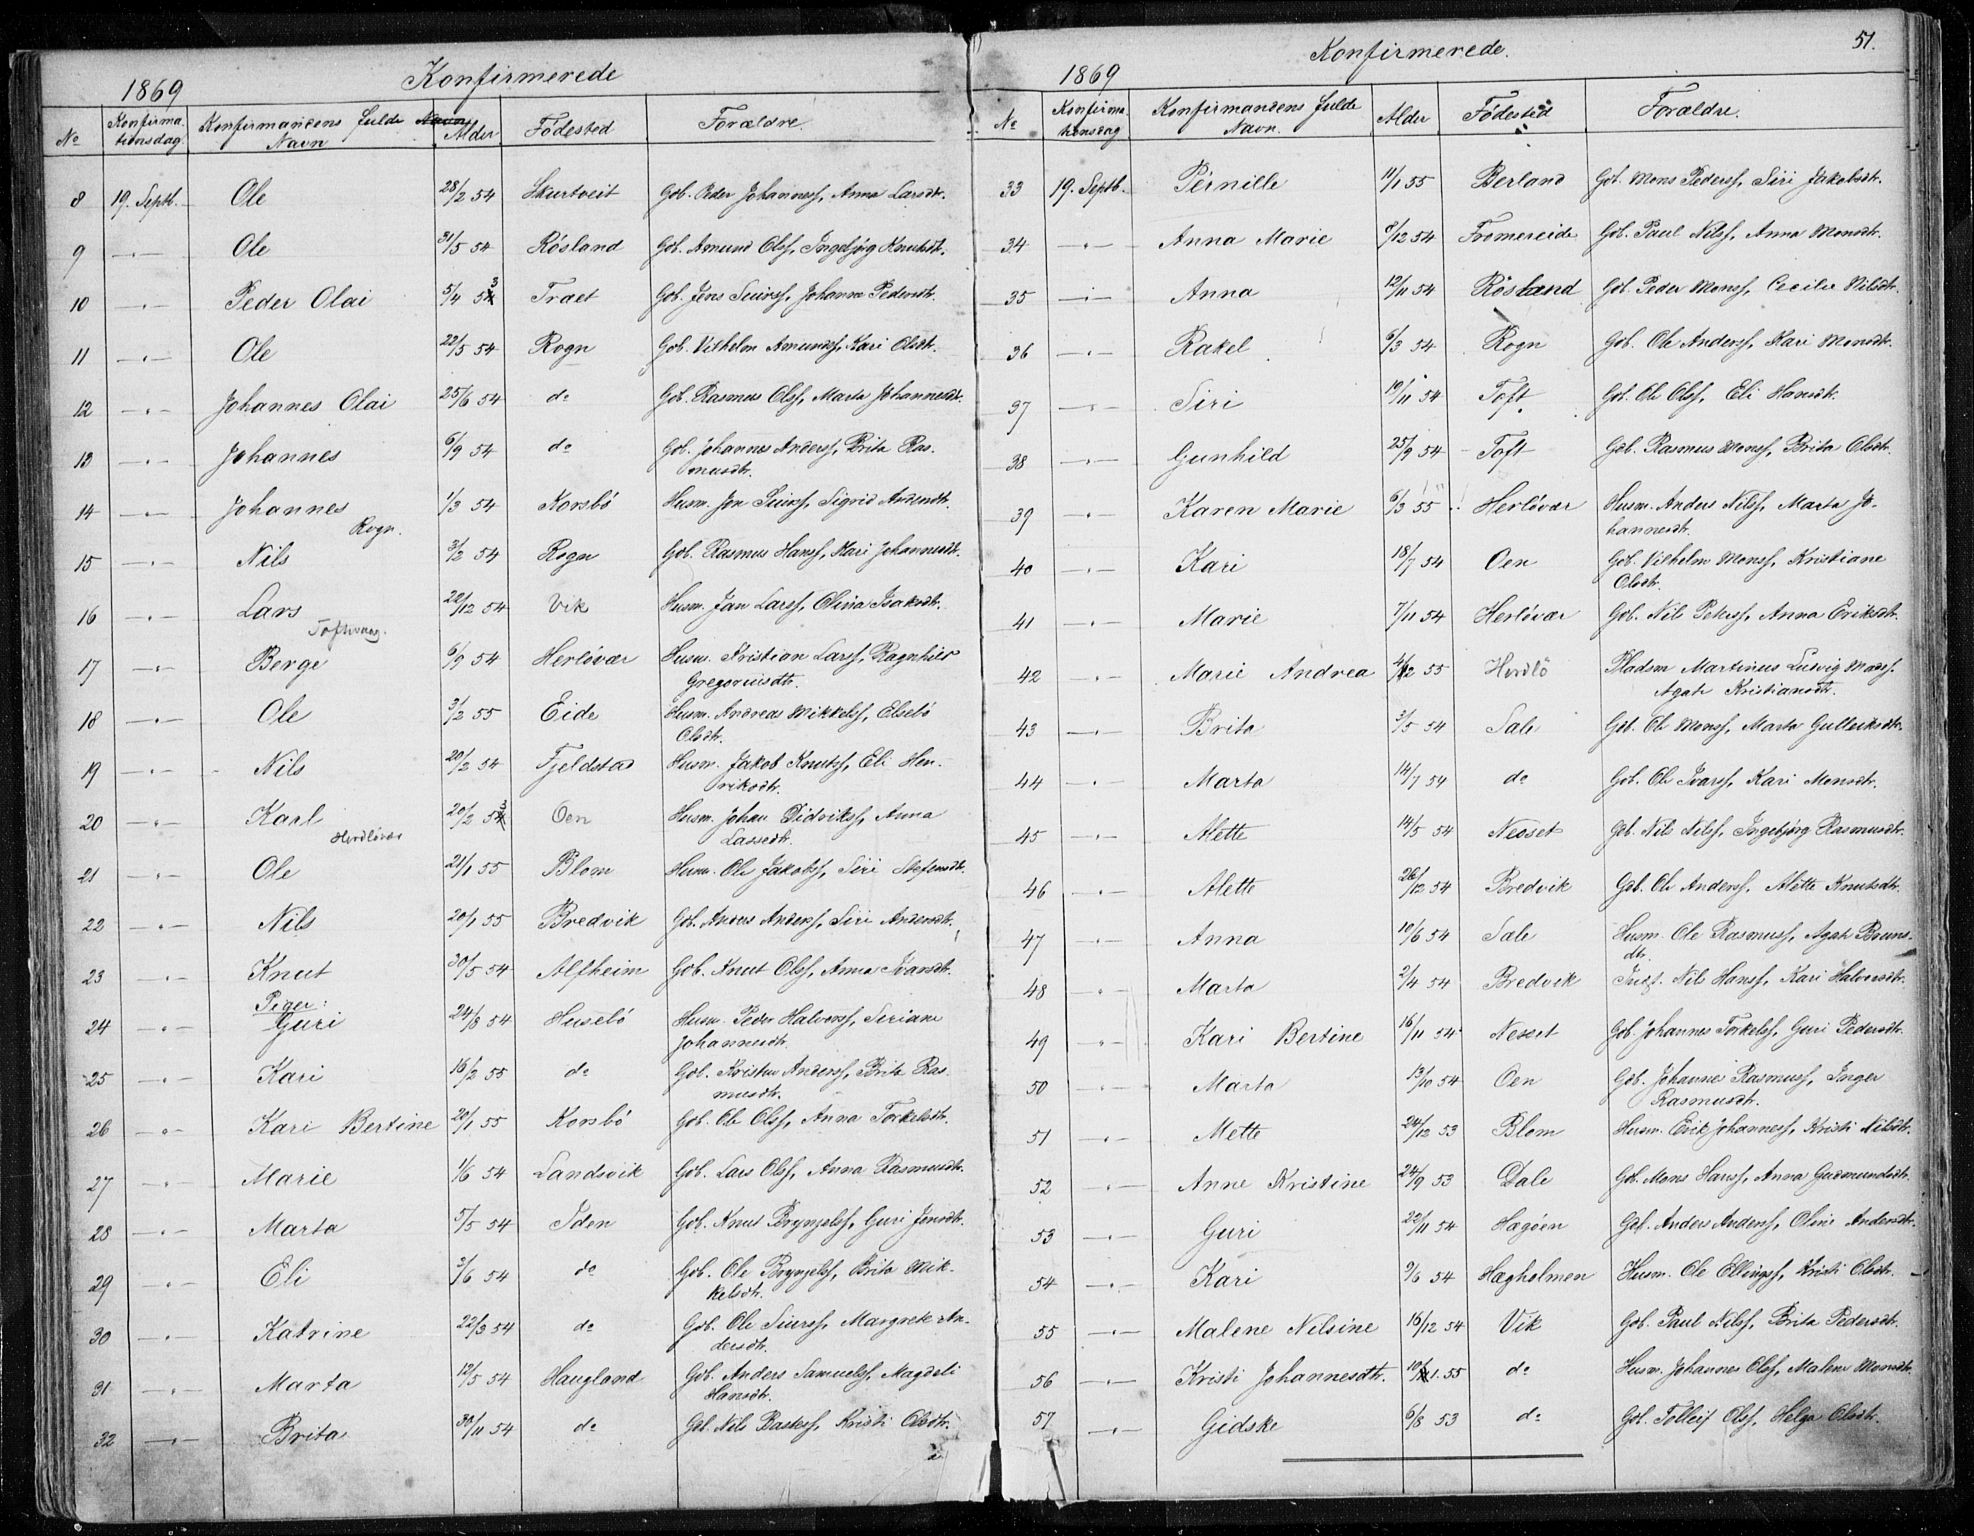 1869 Konfirmerede
No Konfirmationsdag Konfirmandens fulde Navn Alder Fødested Forældre.
8 19. Septb. Ole 28/2 54 Skurtveit Gbb. Peder Johanness, Anna Larsdt.
9 -"- Ole 31/5 54 Røsland Gbb. Amund Olss, Ingebjøg Knutsdt.
10 -"- Peder Olai 5/4 53 Træet Gbb. Jens Siurss, Johanna Pedersdt.
11 -"- Ole 22/5 54 Rogn Gbb. Vilhelm Amundss, Kari Olsdt.
12 -"- Johannes Olai 25/6 54 do Gbb. Rasmus Olss, Marta Johannesdt.
13 -"- Johannes 6/9 54 do Gbb. Johannes Anderss, Brita Ras-
musdt.
14 -"- Johannes 1/3 54 Korsbø Husm. Jon Siurss, Sigrid Andersdt.
Rogn.
15 -"- Nils 3/2 54 Rogn Gbb. Rasmus Hanss, Kari Johannesdt.
16 -"- Lars 22/12 54 Vik Husm. Jan Larss, Olina Isaksdt.
Toftevaag.
17 -"- Berge 6/9 54 Herløvær Husm. Kristian Larss, Ragnhild
Gregoriusdtr.
18 -"- Ole 3/2 55 Eide Husm. Andreas Mikkelss, Elsebø
Olsdt.
19 -"- Nils 20/2 54 Fjeldstad Husm. Jakob Knutss, Eli Hen-
riksdt.
20 -"- Karl 20/2 53 Oen Husm. Johan Didrikss, Anna
Lassedt.
Herdløvær
21 -"- Ole 21/1 55 Blom Husm. Ole Jakobss, Siri Stefensdt.
22 -"- Nils 20/1 55 Bredvik Gbb. Anders Anderss, Siri Andersdt.
23 -"- Knut 30/5 54 Alfheim Gbb. Knut Olss, Anna Ivarsdt.
Piger:
24 -"- Guri 24/8 54 Husebø Husm. Peder Halvorss, Siriane
Johannesdt.
25 -"- Kari 16/2 55 do Gbb. Kristen Anderss, Brita Ras-
musdt.
26 -"- Kari Bertine 20/1 55 Korsbø Gbb. Ole Olss, Anna Torkelsdt.
27 -"- Marie 1/6 54 Landsvik Gbb. Lars Olss, Anna Rasmusdt.
28 -"- Marta 5/5 54 Iden Gbb. Knut Brynjelss, Guri Jensdt.
29 -"- Eli 3/6 54 do Gbb. Ole Brynjelss, Brita Mik-
kelsdt.
30 -"- Katrine 22/3 54 do Gbb. Ole Siurss, Margrete An-
dersdt.
31 -"- Marta 12/5 54 Haugland Gbb. Anders Samuelss, Magdeli
Hansdt.
32 -"- Brita 30/11 54 do Gbb. Nils Basless, Kristi Olsdt.
1869 Konfirmerede. 51.
No Konfirmationsdag Konfirmandens fulde Navn. Alder Fødested Forældre.
33 19. Septb. Pernille 11/1 55 Berland Gbb. Mons Pederss, Siri Jakobsdt.
34 -"- Anna Marie 8/12 54 Fromereide Gbb. Paul Nilss, Anna Monsdt.
35 -"- Anna 12/11 54 Røsland Gbb. Peder Monss, Cecilie Nilsdt.
36 -"- Rakel 6/3 54 Rogn Gbb. Ole Anderss, Kari Monsdt.
37 -"- Siri 19/11 54 Toft Gbb. Ole Olss, Eli Hansdt.
38 -"- Gunhild 25/9 54 Toft Gbb. Rasmus Monss, Brita Olsdt.
39 -"- Karen Marie 6/3 55 Herløvær Husm. Anders Nilss, Marta Jo-
hannesdt.
40 -"- Kari 18/7 54 Oen Gbb. Vilhelm Monss, Kristiane
Olsdt.
41 -"- Marie 7/11 54 Herløvær Gbb. Nils Peterss, Anna Eriksdt.
42 -"- Marie Andrea 4/2 55 Herdlø Pladsm Martinus Ludvig Madss.
Agate Kristiansdt.
43 -"- Brita 3/5 54 Sale Gbb. Ole Monss, Marta Gulleiksdt.
44 -"- Marta 14/7 54 do Gbb. Ole Ivarss, Kari Monsdt.
45 -"- Alette 14/5 54 Neset Gbb. Nils Nilss, Ingebjørg Rasmusdt.
46 -"- Alette 26/12 54 Bredvik Gbb. Ole Anderss, Alette Knutsdt.
47 -"- Anna 10/6 54 Sale Husm. Ole Rasmuss, Agate Bruns-
dt.
48 -"- Marta 2/4 54 Bredvik Nils Hanss, Kari Halvorsdt.
49 -"- Kari Bertine 16/11 54 Neset Gbb. Johannes Torkelss, Guri Pedersdt.
50 -"- Marta 13/10 54 Oen Gbb. Johannes Rasmuss, Inger
Rasmusdt.
51 -"- Mette 24/12 53 Blom Husm. Erik Johanness, Kristi Nilsdt.
52 -"- Anne Kristine 24/9 53 Dale Gbb. Mons Hanss, Anna Gudmundsdt.
53 -"- Guri 22/11 54 Hægøen Gbb. Anders Anderss, Oline Andersdt.
54 -"- Kari 9/6 54 Hægholmen Husm. Ole Ellingss, Kristi Olsdt.
55 -"- Malene Nilsine 16/12 54 Vik Gbb. Paul Nilss, Brita Pedersdt.
56 -"- Kristi Johannesdt. 10/1. 55 do Husm. Johannes Olss, Malene Monsdt.
57 -"- Gidske 6/8 53 do Gbb. Tolleif Olss, Helga Olsdt.